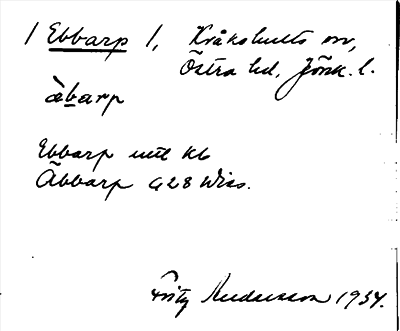 / Ebbarp /, Kråkshults sn,
Östra hd, Jönk. l.
àbarp
Ebbarp utt kb
Äbbarp G28 Wiss.
Fritz Andersson 1934.